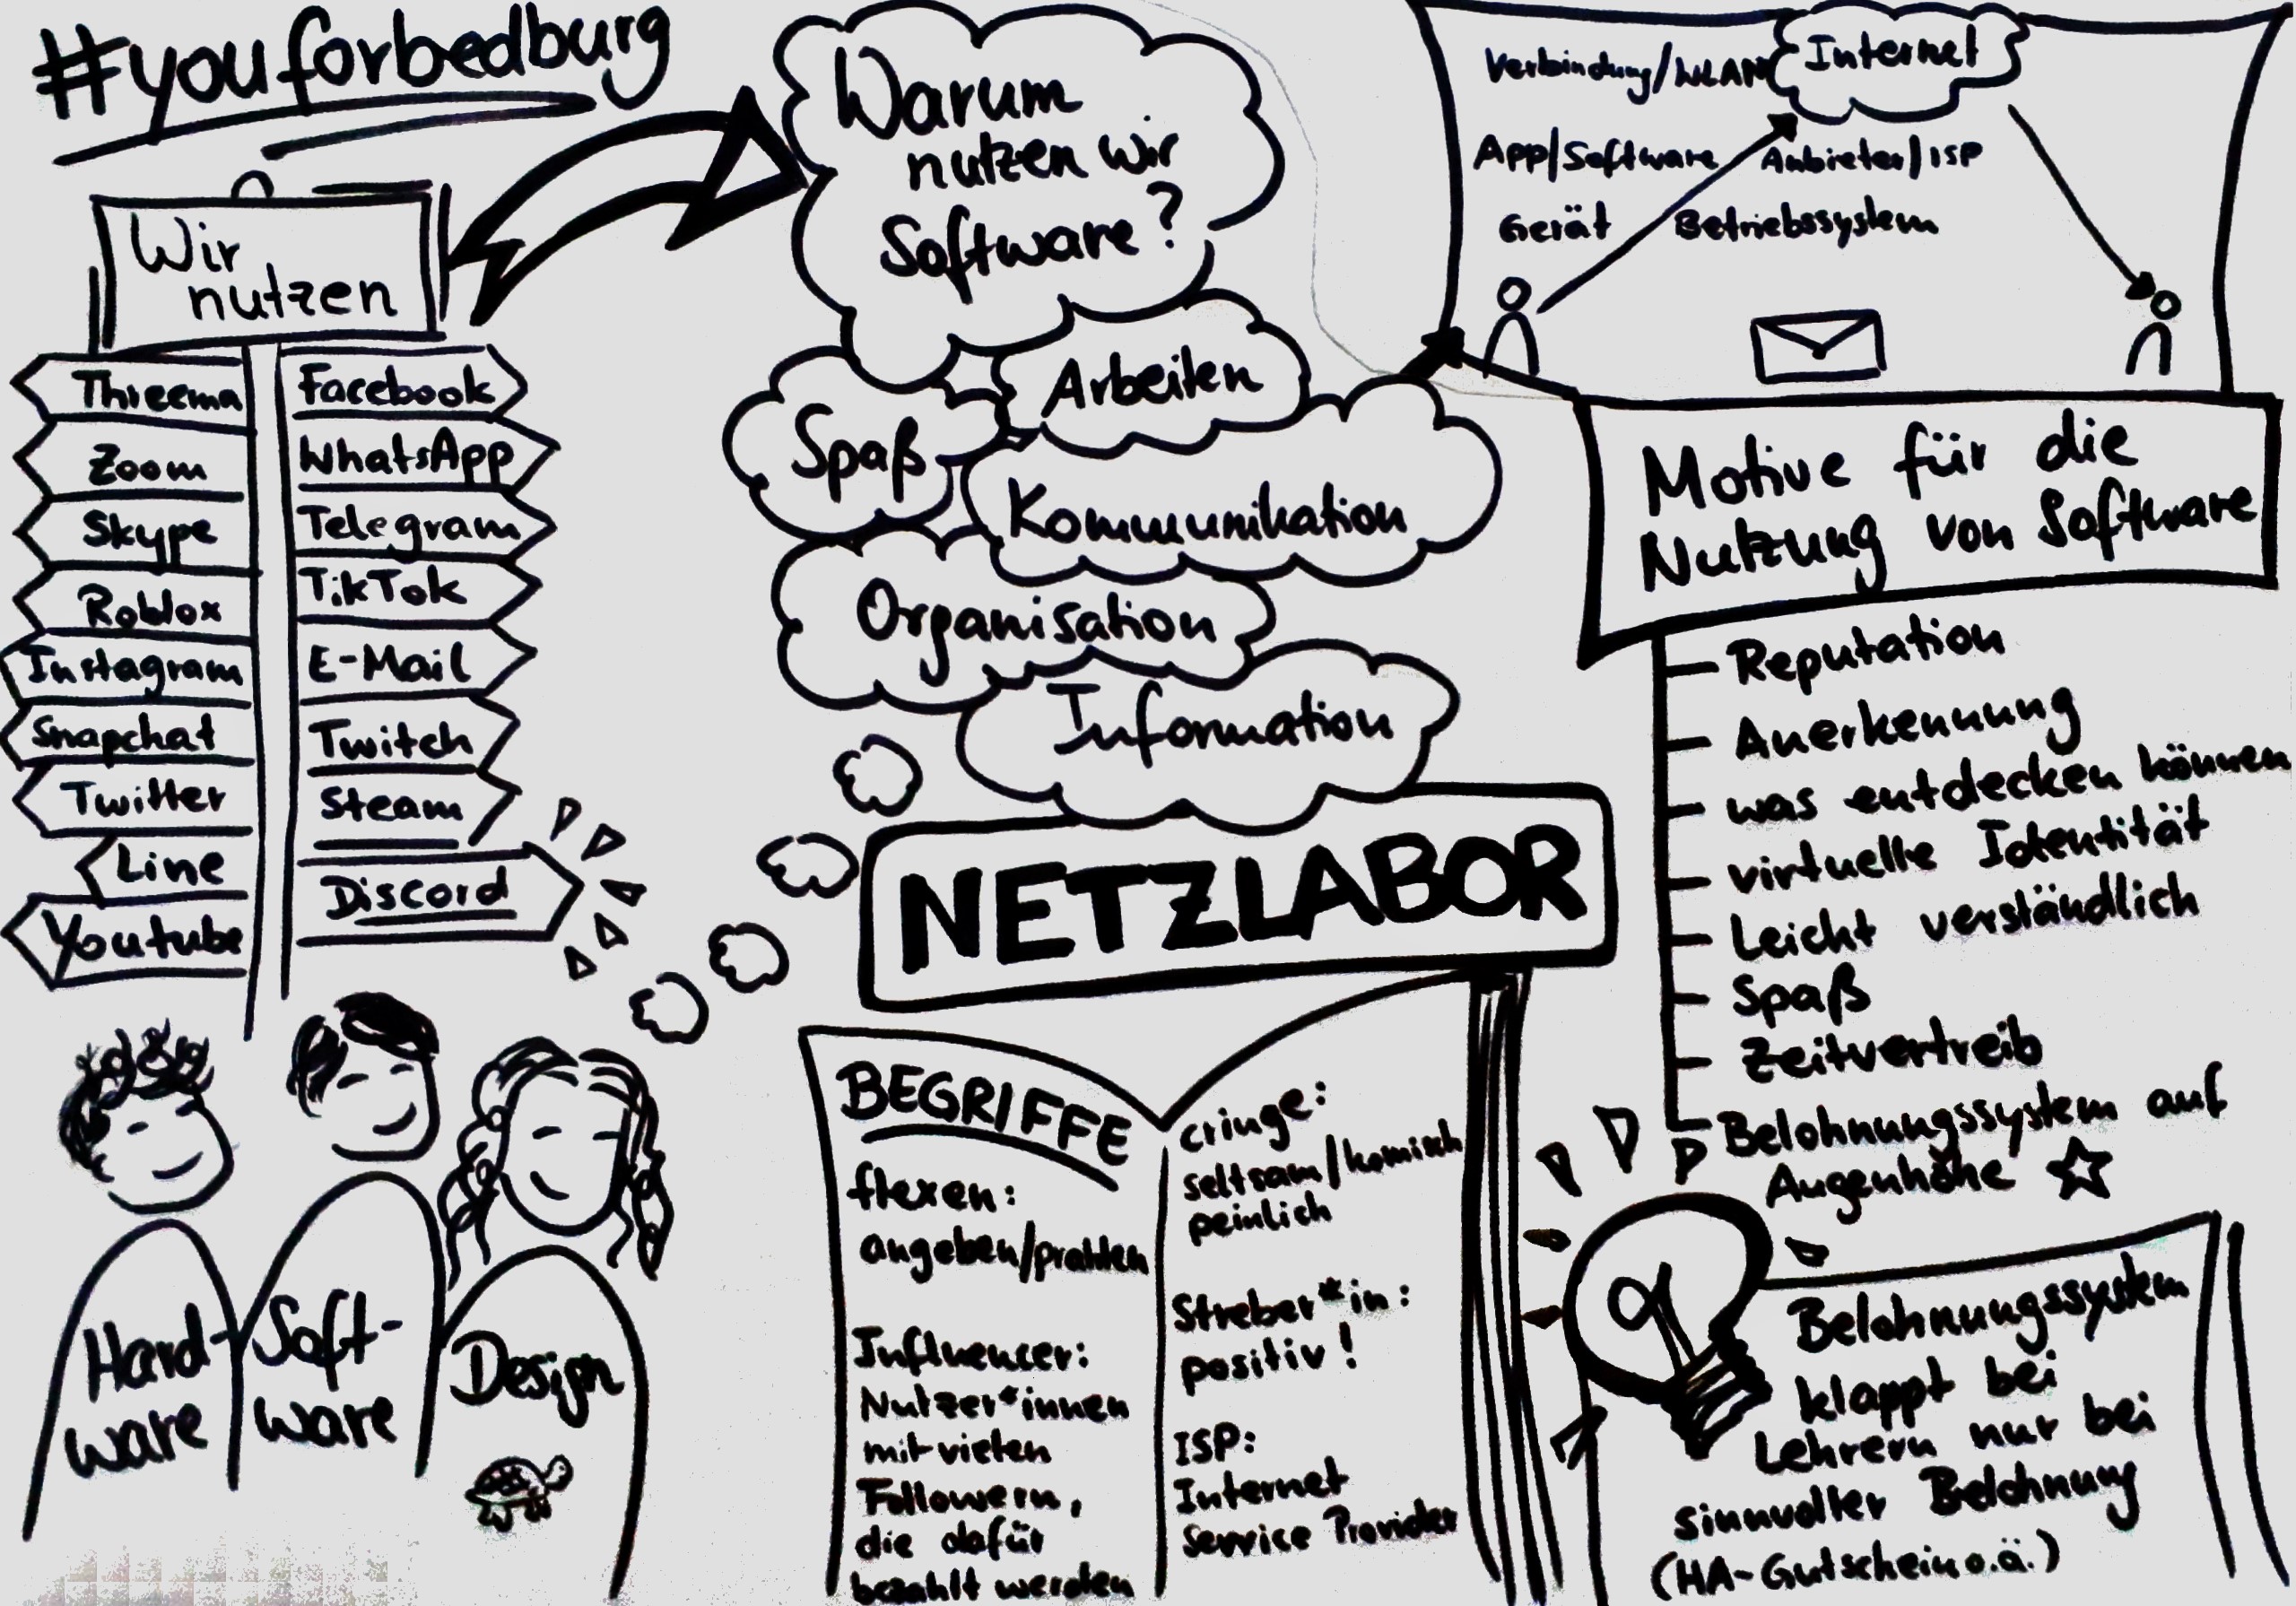 #youforbedburg
Wir
nutzen
Threema
Zoom
Skype
Roblox
Instagram
Snapchat
Twitter
Line
Youtube
Facebook
WhatsApp
Telegram
TikTok
E-Mail
Twitch
Steam
Discord
Warum
nutzen wir
Software?
Arbeiten
Spaß
Kommunikation
Organisation
Information
NETZLABOR
Verbindung/WLAN
Internet
App/Software
Anbieter/ISP
Gerät
Betriebssystem
Motive für die
Nutzung von Software
Reputation
Anerkennung
was entdecken können
virtuelle Identität
Leicht verständlich
Spaß
Zeitvertreib
Belohnungssystem auf
Augenhöhe
Hard-
ware
Soft-
ware
Design
BEGRIFFE
flexen:
angeben/prahlen
Influencer:
Nutzer*innen
mit vielen
Followern,
die dafür
bezahlt werden
cringe:
seltsam/komisch
peinlich
Streber*in:
positiv!
ISP:
Internet
Service Provider
Belohnungssystem
klappt bei
Lehrern nur bei
sinnvoller Belohnung
(HA-Gutschein o.ä.)